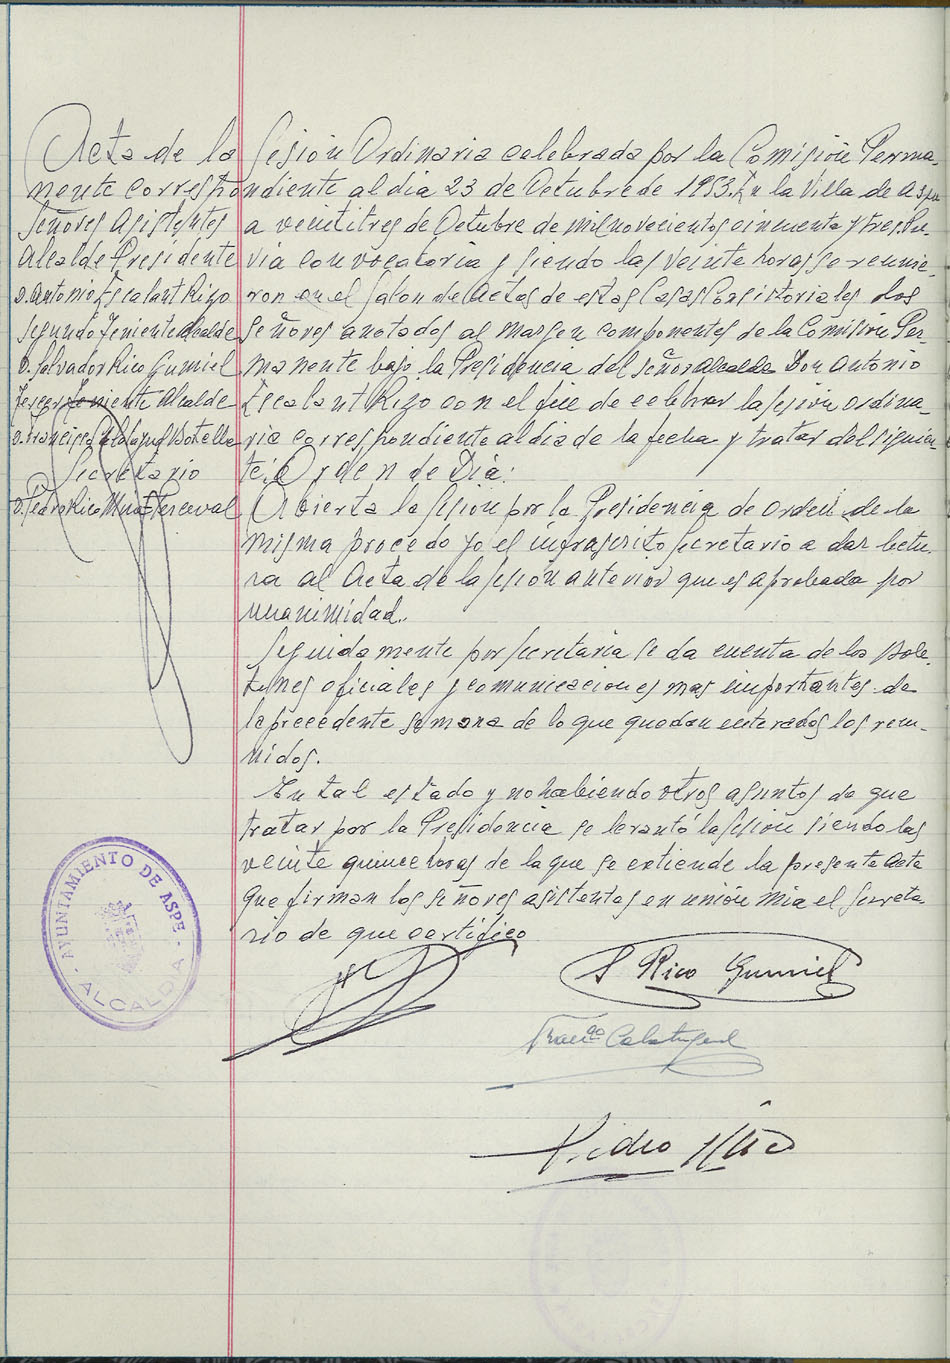 Acta de la Sesión Ordinaria celebrada por la Comisión Perma-
nente correspondiente al dia 23 de Octubre de 1953. En la Villa de Aspe
a veintitres de Octubre de mil novecientos cincuenta y tres. Pre-
via convocatoria y siendo las veinte horas se reunie-
ron en el Salon de Actos de estas Casas Consistoriales los
señores anotados al margen componentes de la Comisión Per-
manente bajo la Presidencia del señor Alcalde Don Antonio
Escalant Rizo con el fin de celebrar la sesión ordina-
ria correspondiente al dia de la fecha y tratar del siguien-
te: Orden de Dia:
Señores Asistentes
Alcalde Presidente
D. Antonio Escalant Rizo
Segundo Teniente Alcalde
D. Salvador Rico Gumiel
Tercer Teniente Alcalde
D. Francisco Calatayud Botella
Secretario
D. Pedro Rico Muñoz Perceval
Abierta la sesión por la Presidencia de orden de la
misma procedo yo el infrascrito secretario a dar lectu-
ra al Acta de la sesión anterior que es aprobada por
unanimidad.
Seguidamente por secretaria se da cuenta de los Bole-
tines oficiales y comunicaciones mas importantes de
la precedente semana de lo que quedan enterados los reu-
nidos.
En tal estado y no habiendo otros asuntos de que
tratar por la Presidencia se levantó la sesión siendo las
veinte quince horas de la que se extiende la presente Acta
que firman los señores asistentes en unión mia el Secreta-
rio de que certifico
AYUNTAMIENTO DE ASPE
- ALCALDIA -
S Rico Gumiel
Franco Calatayud
Pedro Rico